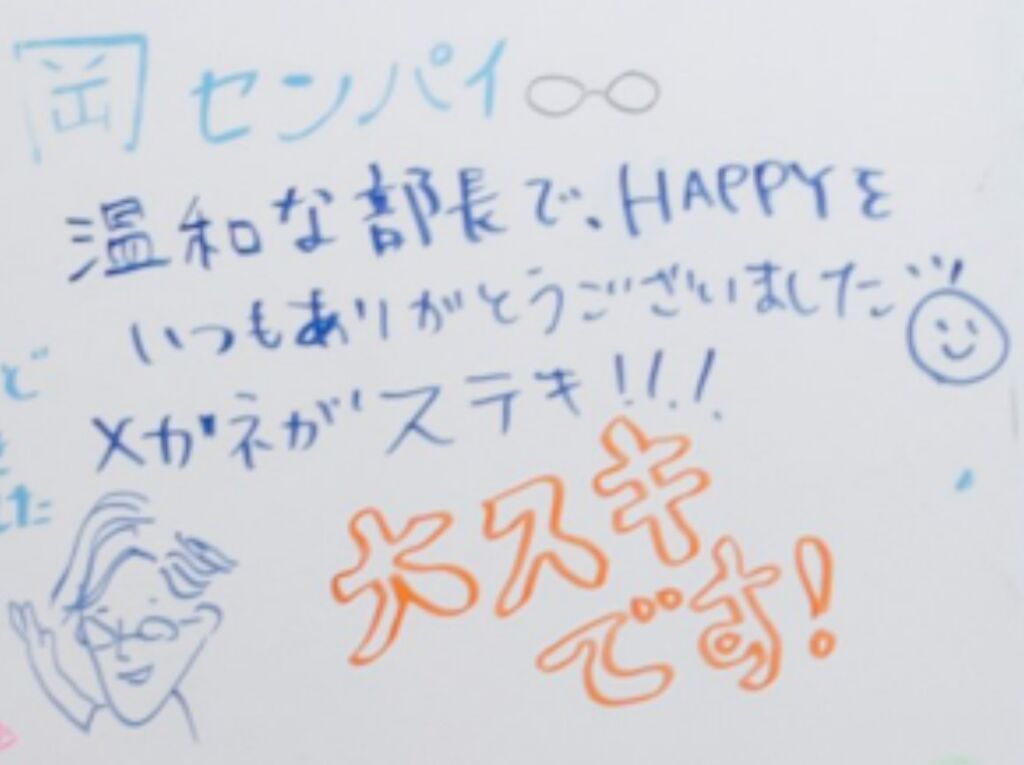 岡センパイ
温和な部長で、HAPPYを
いつもありがとうございました
メガネがステキ!!!
大スキ
です!
ど
た